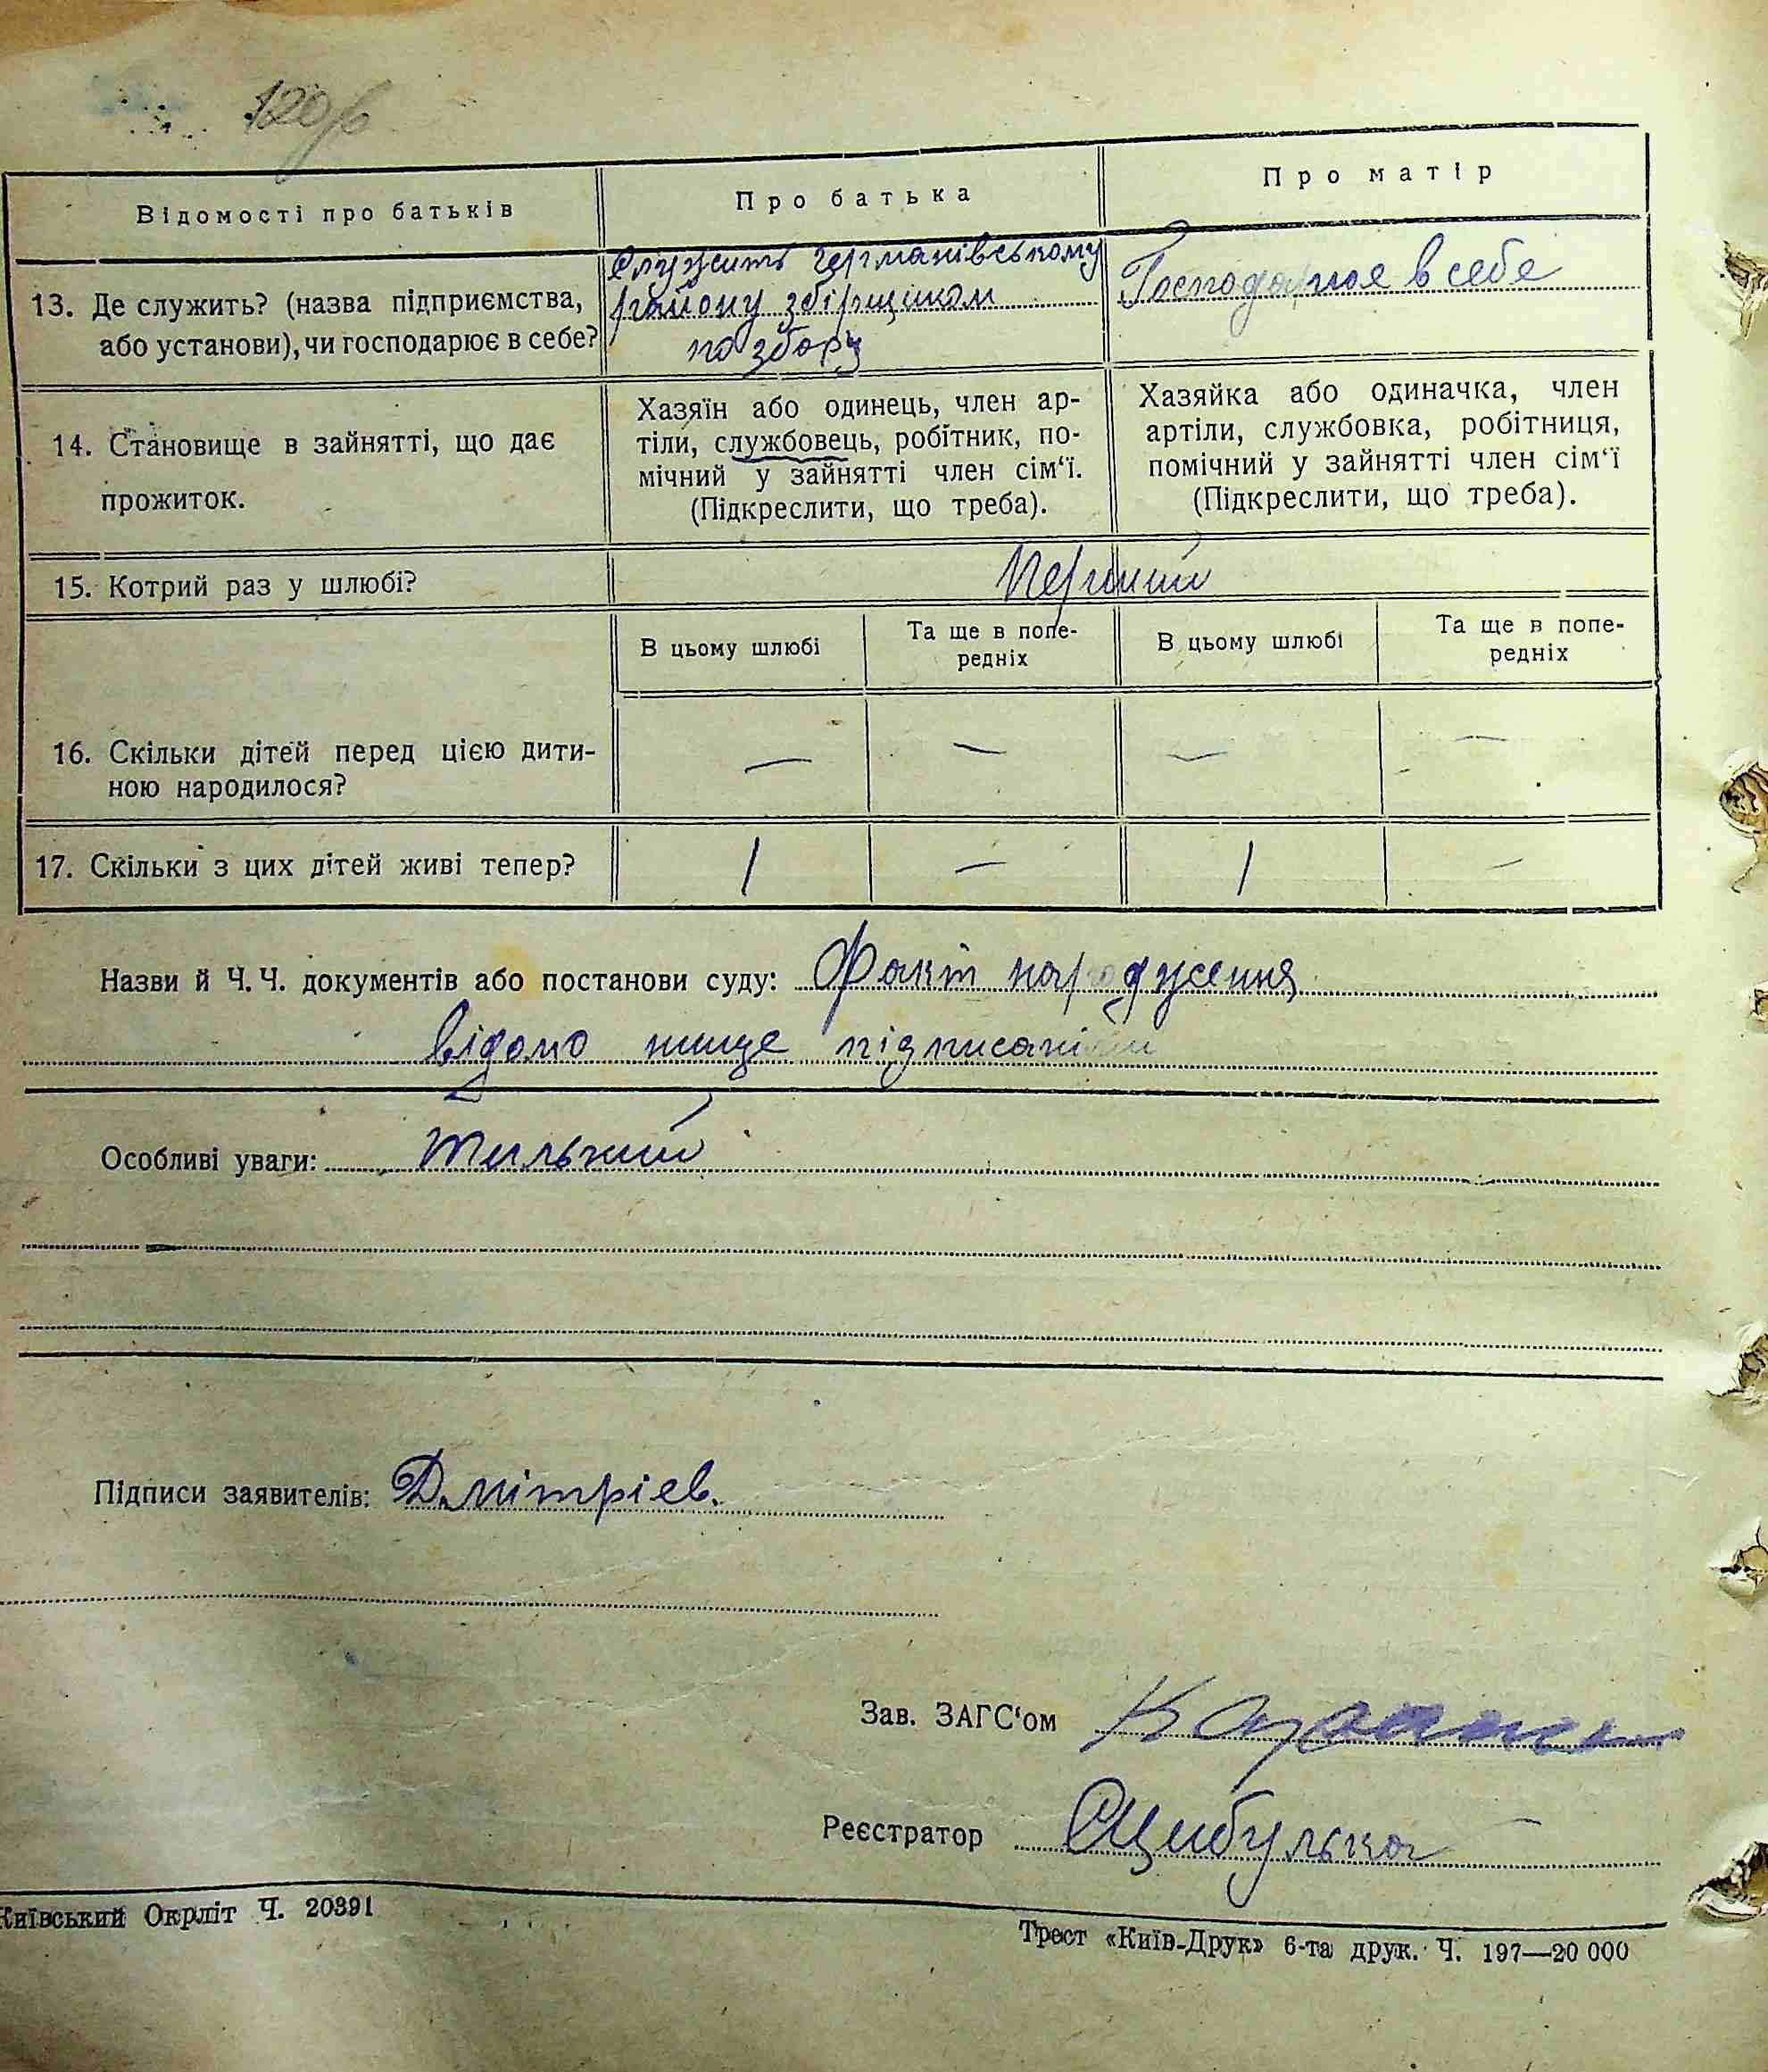 Відомості про батьків
Про батька
Про матір
13. Де служить? (назва підприємства,
або установи), чи господарює в себе?
Служить Германівському
району збірщиком
по збору
Господарює в себе
14. Становище в зайнятті, що дає
прожиток.
Хазяїн або одинець, член ар-
тіли, службовець, робітник, по-
мічний у зайнятті член сім‘ї.
(Підкреслити, що треба).
Хазяйка або одиначка, член
артіли, службовка, робітниця,
помічний у зайнятті член сім‘ї
(Підкреслити, що треба).
15. Котрий раз у шлюбі?
Перший
В цьому шлюбі
Та ще в попе-
редніх
В цьому шлюбі
Та ще в попе-
редніх
16. Скільки дітей перед цією дити-
ною народилося?
— — — —
17. Скільки з цих дітей живі тепер?
1 — 1 —
Назви й Ч. Ч. документів або постанови суду: Факт народження
відомо нище підписаній
Особливі уваги:
Підписи заявителів: Дмітрієв.
Зав. ЗАГС‘ом
Реєстратор Цибулька
Київський Окрліт Ч. 20391
Трест «Київ-Друк» 6-та друк. Ч. 197—20 000